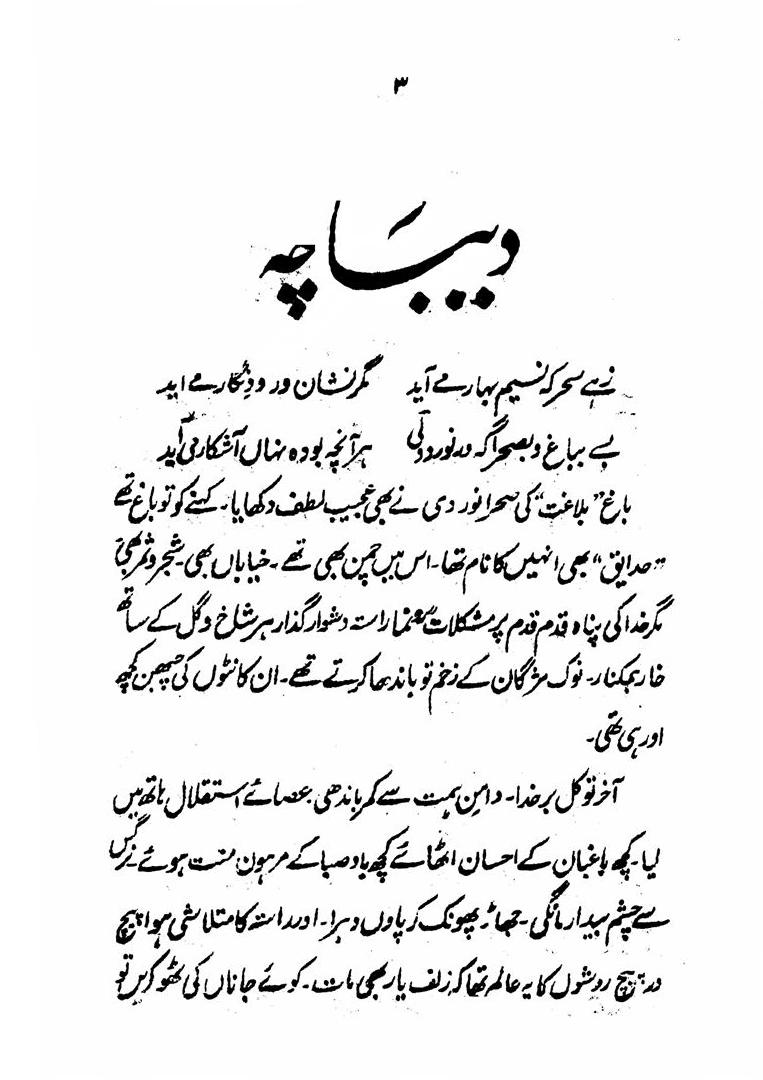 ۳
دیباچہ
زہے سحر کہ نسیم بہار مے آید مگر نشان ورودِ نگار مے آید
بے بباغ و بصحرا گہ در نورد دلی ہر آنچہ بودہ نہاں آشکار می آید
باغ "بلاغت" کی صحرا نوردی نے بھی عجیب لطف دکھایا۔ کہنے کو تو باغ تھے
"حدایق" بھی انہیں کا نام تھا۔ اس میں چمن بھی تھے۔ خیاباں بھی۔ شجر و ثمر بھی
مگر خدا کی پناہ قدم قدم پر مشکلات کا سامنا راستہ دشوار گذار ہر شاخ و گل کے ساتھ
خار ہمکنار۔ نوک مژگان کے زخم تو باندھا کرتے تھے۔ ان کانٹوں کی چھبن کچھ
اور ہی تھی۔
آخر توکل بر خدا۔ دامنِ ہمت سے کمر باندھی عصائے استقلال ہاتھ میں
لیا۔ کچھ باغبان کے احسان اٹھائے کچھ باد صبا کے مرہون منت ہوئے۔ نرگس
سے چشم بیدار مانگی۔ جھاڑ پھونک کر پاوں دہرا۔ اور راستہ کا متلاشی ہوا پیچ
در پیچ روشوں کا یہ عالم تھا کہ زلف یار بھی مات۔ کوئے جاناں کی ٹھوکریں تو